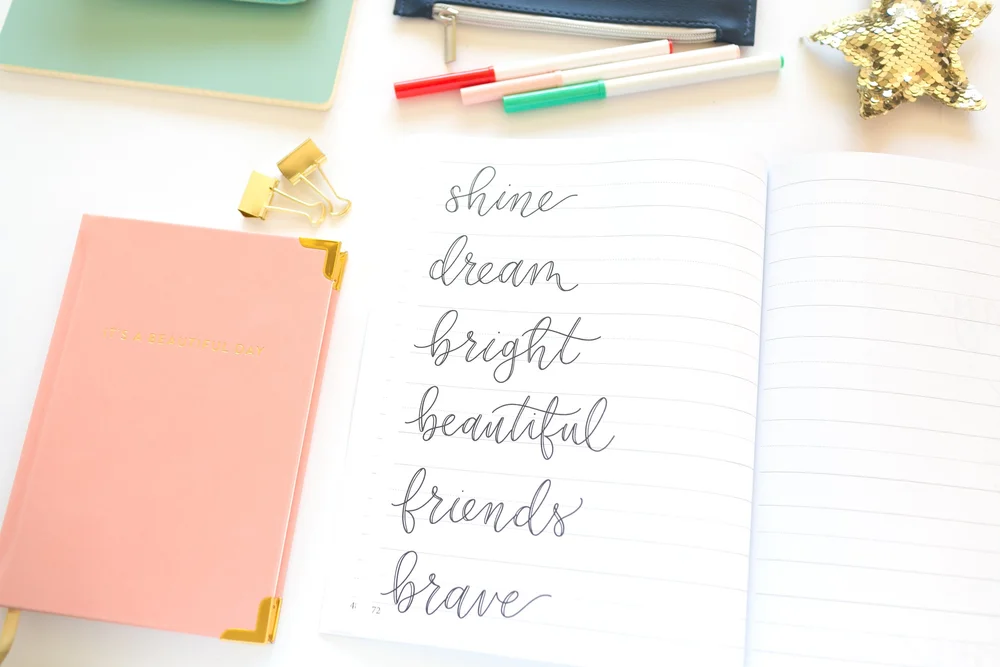 shine
dream
bright
beautiful
friends
brave
72
IT'S A BEAUTIFUL DAY